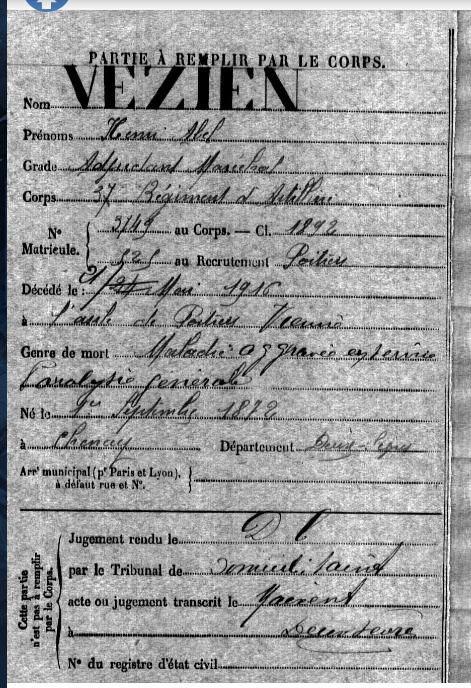 PARTIE À REMPLIR PAR LE CORPS.
Nom VÉZIEN
Prénoms Henri Abel
Grade Adjudant Maréchal
Corps 37 Régiment d'Artillerie
N° Matricule. 3149 au Corps. — Cl. 1892
521 au Recrutement Poitiers
Décédé le : Mai 1916
à l'asile de Poitiers Vienne
Genre de mort Maladie aggravée
Paralysie générale
Né le Septembre 1872
à Chenay Département Deux-Sèvres
Arr^t municipal (p^r Paris et Lyon),
à défaut rue et N°.
Cette partie n'est pas à remplir par le Corps.
Jugement rendu le D C
par le Tribunal de
acte ou jugement transcrit le
à Deux Sèvres
N° du registre d'état civil